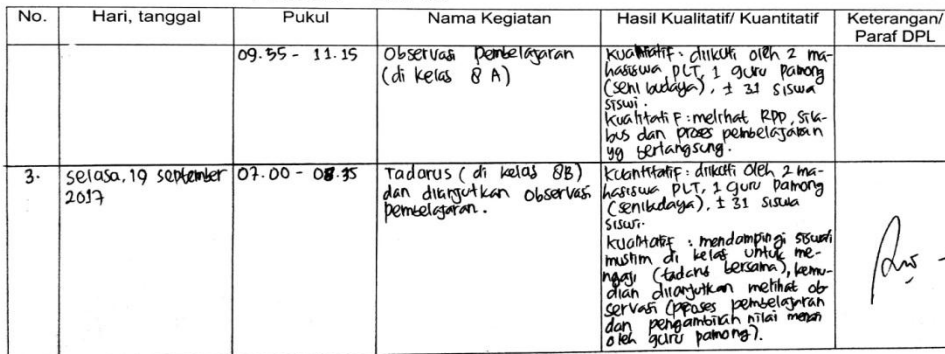 No. Hari, tanggal Pukul Nama Kegiatan Hasil Kualitatif/ Kuantitatif Keterangan/
Paraf DPL
09.55 - 11.15 Observasi Pembelajaran
(di kelas 8 A)
Kualitatif : diikuti oleh 2 ma-
hasiswa PLT, 1 guru Pamong
(seni budaya), ± 31 siswa
siswi.
Kualitatif : melihat RPP, sila-
bus dan proses pembelajaran
yg berlangsung.
3. selasa, 19 september 07.00 - 08.35 Tadarus (di kelas 8B)
2017
dan dilanjutkan observasi
pembelajaran.
Kuantitatif : diikuti oleh 2 ma-
hasiswa PLT, 1 Guru Pamong
(seni budaya), ± 31 siswa
siswi.
Kualitatif : mendampingi siswa/i
muslim di kelas untuk me-
ngaji (tadarus bersama), kemu-
dian dilanjutkan melihat ob
servasi (proses pembelajaran
dan pengambilan nilai
oleh guru pamong).